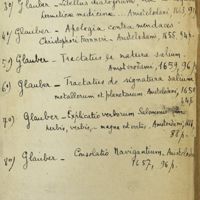 3o) Glauber - Libellus dialogorum,
hermetica medicina... Amstelodami, 1663,
4o) Glauber - Apologia contra mendaces
Christophori Farnneri. Amstelodami, 1655,
5o) Glauber - Tractatus de natura salium
Amsterodami, 1659, 96 p.
6o) Glauber - Tractatus de signatura salium
metallorum et planetarum Amstelodami, 1659
7o) Glauber - Explicatio verborum Salomonis
herbis, verbis, - magna est virtus, Amsterdami, 1664
88 p.
8o) Glauber - Consolatio Navigantium, Amstelodami
1657, 96 p.